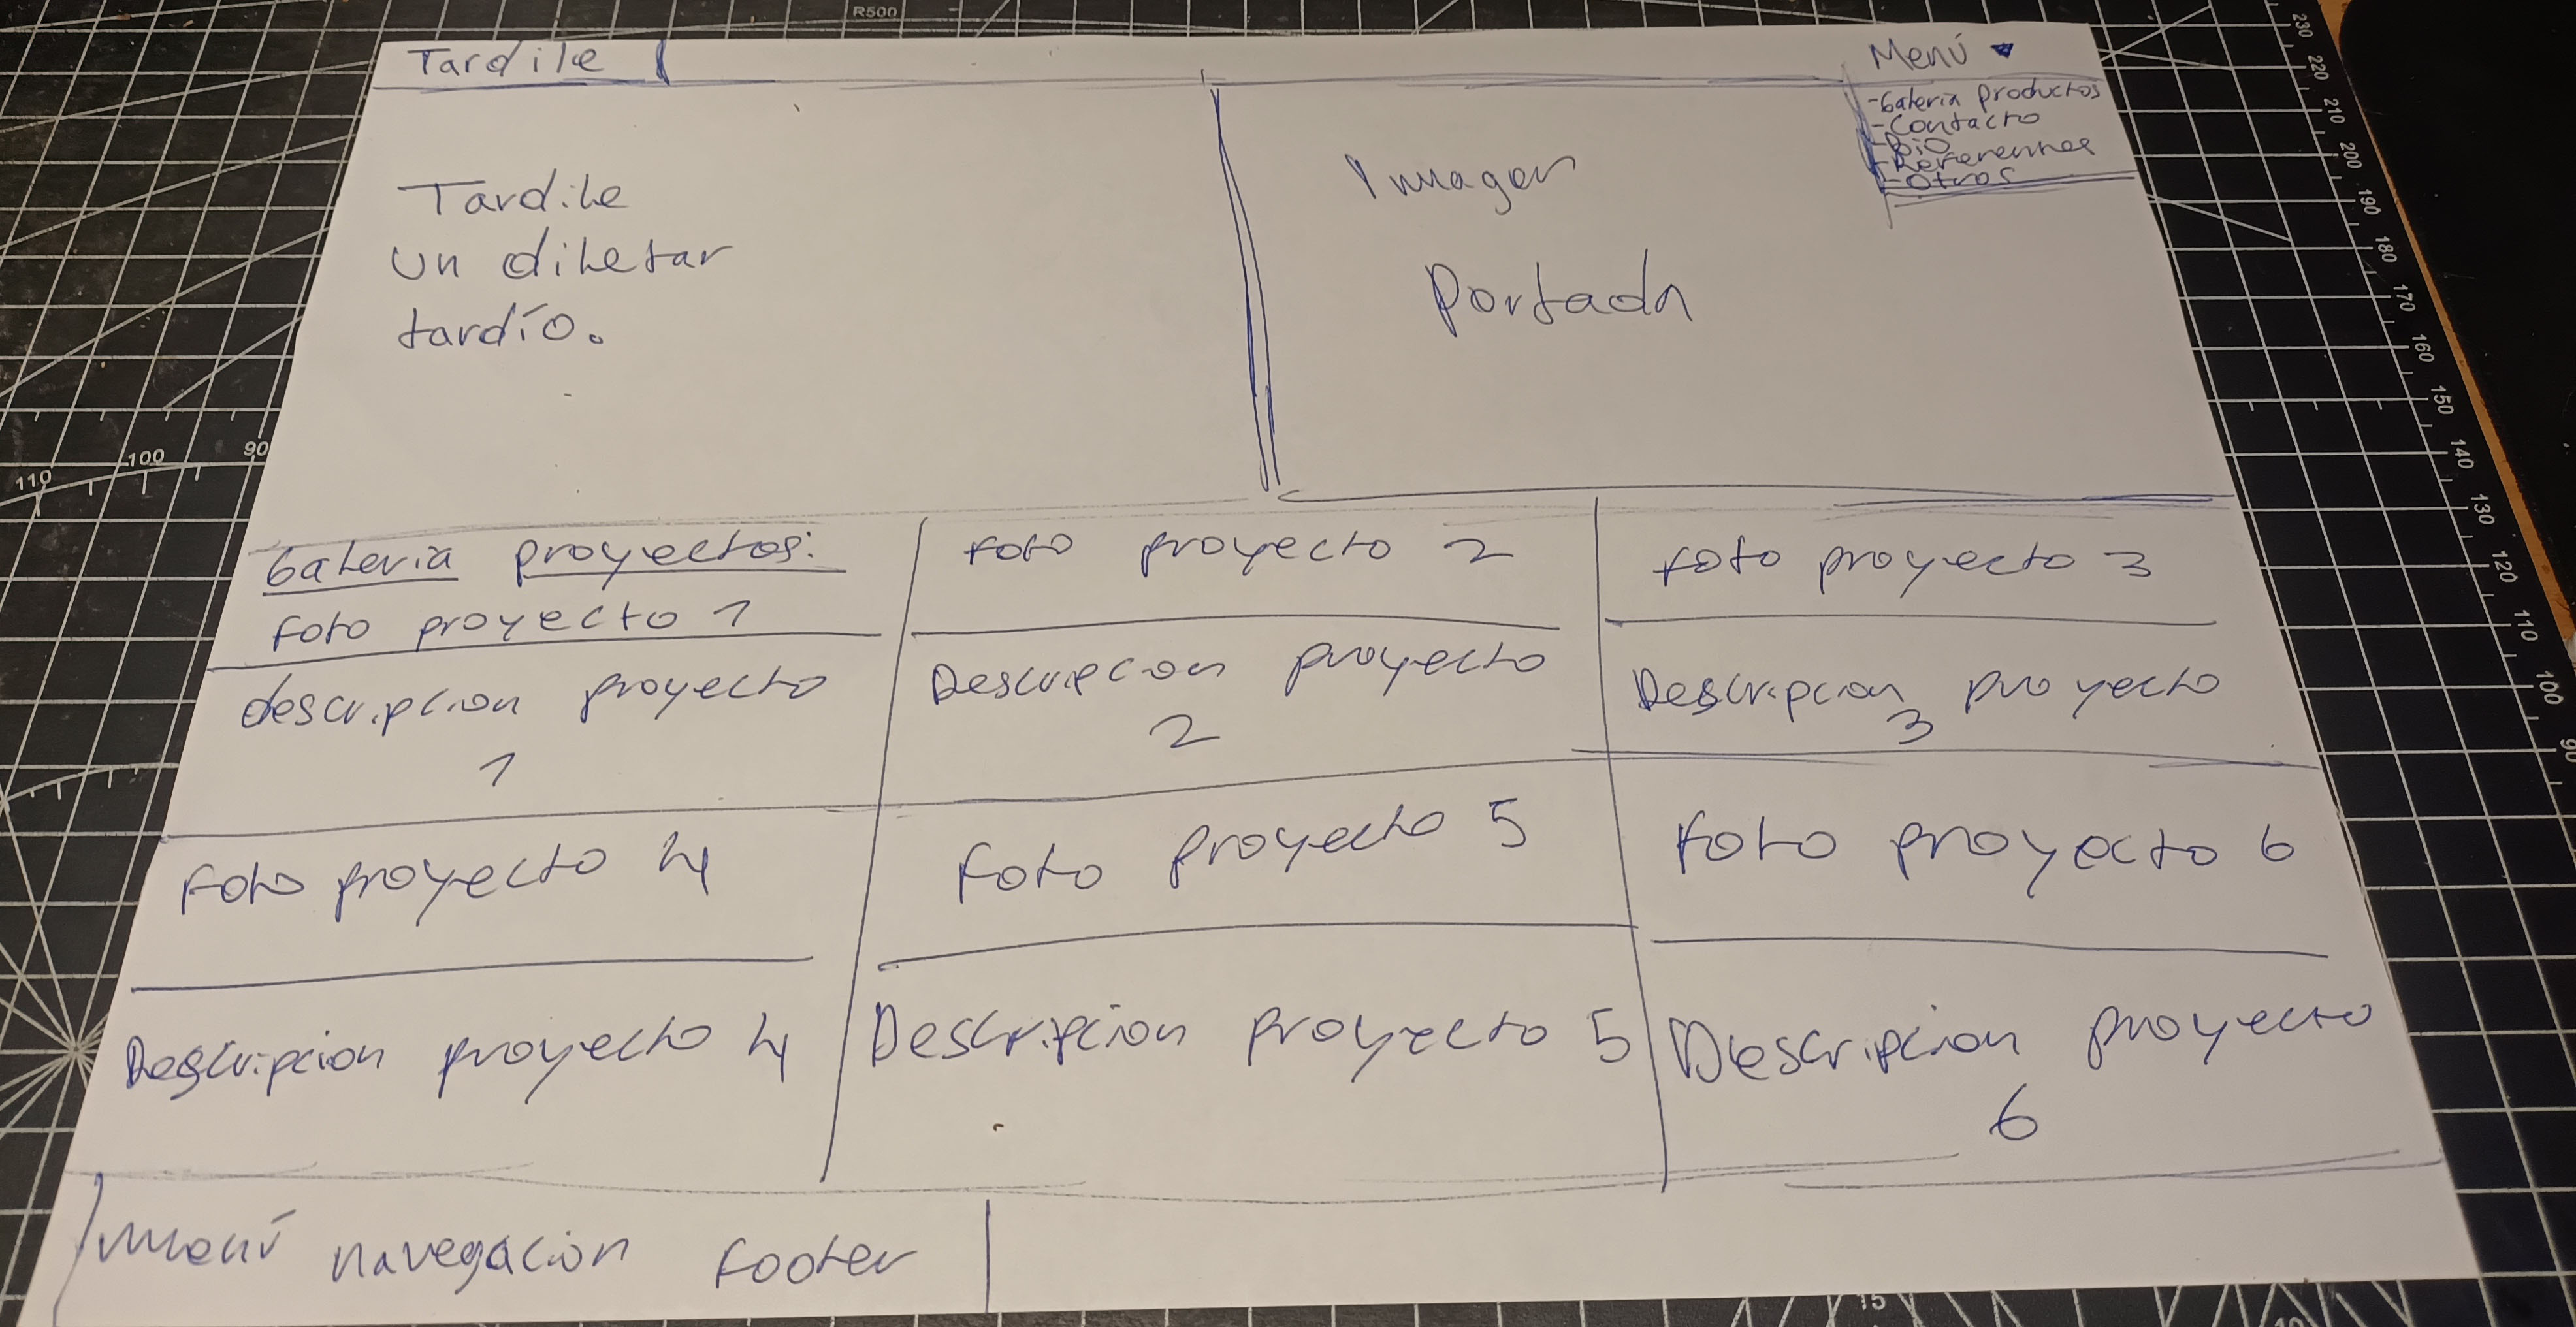 R500
Tardile
Menú
-Galeria productos
-Contacto
-Bio
-Referentes
-Otros
Tardile
un diletar
tardío.
Imagen
Portada
Galeria proyectos:
foto proyecto 1
foto proyecto 2
foto proyecto 3
descripcion proyecto
1
Descripcion proyecto
2
Descripcion proyecto
3
Foto proyecto 4
Foto proyecto 5
foto proyecto 6
Descripcion proyecto 4
Descripcion proyecto 5
Descripcion proyecto
6
menú navegación footer
110
100
90
230
220
210
200
190
180
170
160
150
140
130
120
110
100
90
15